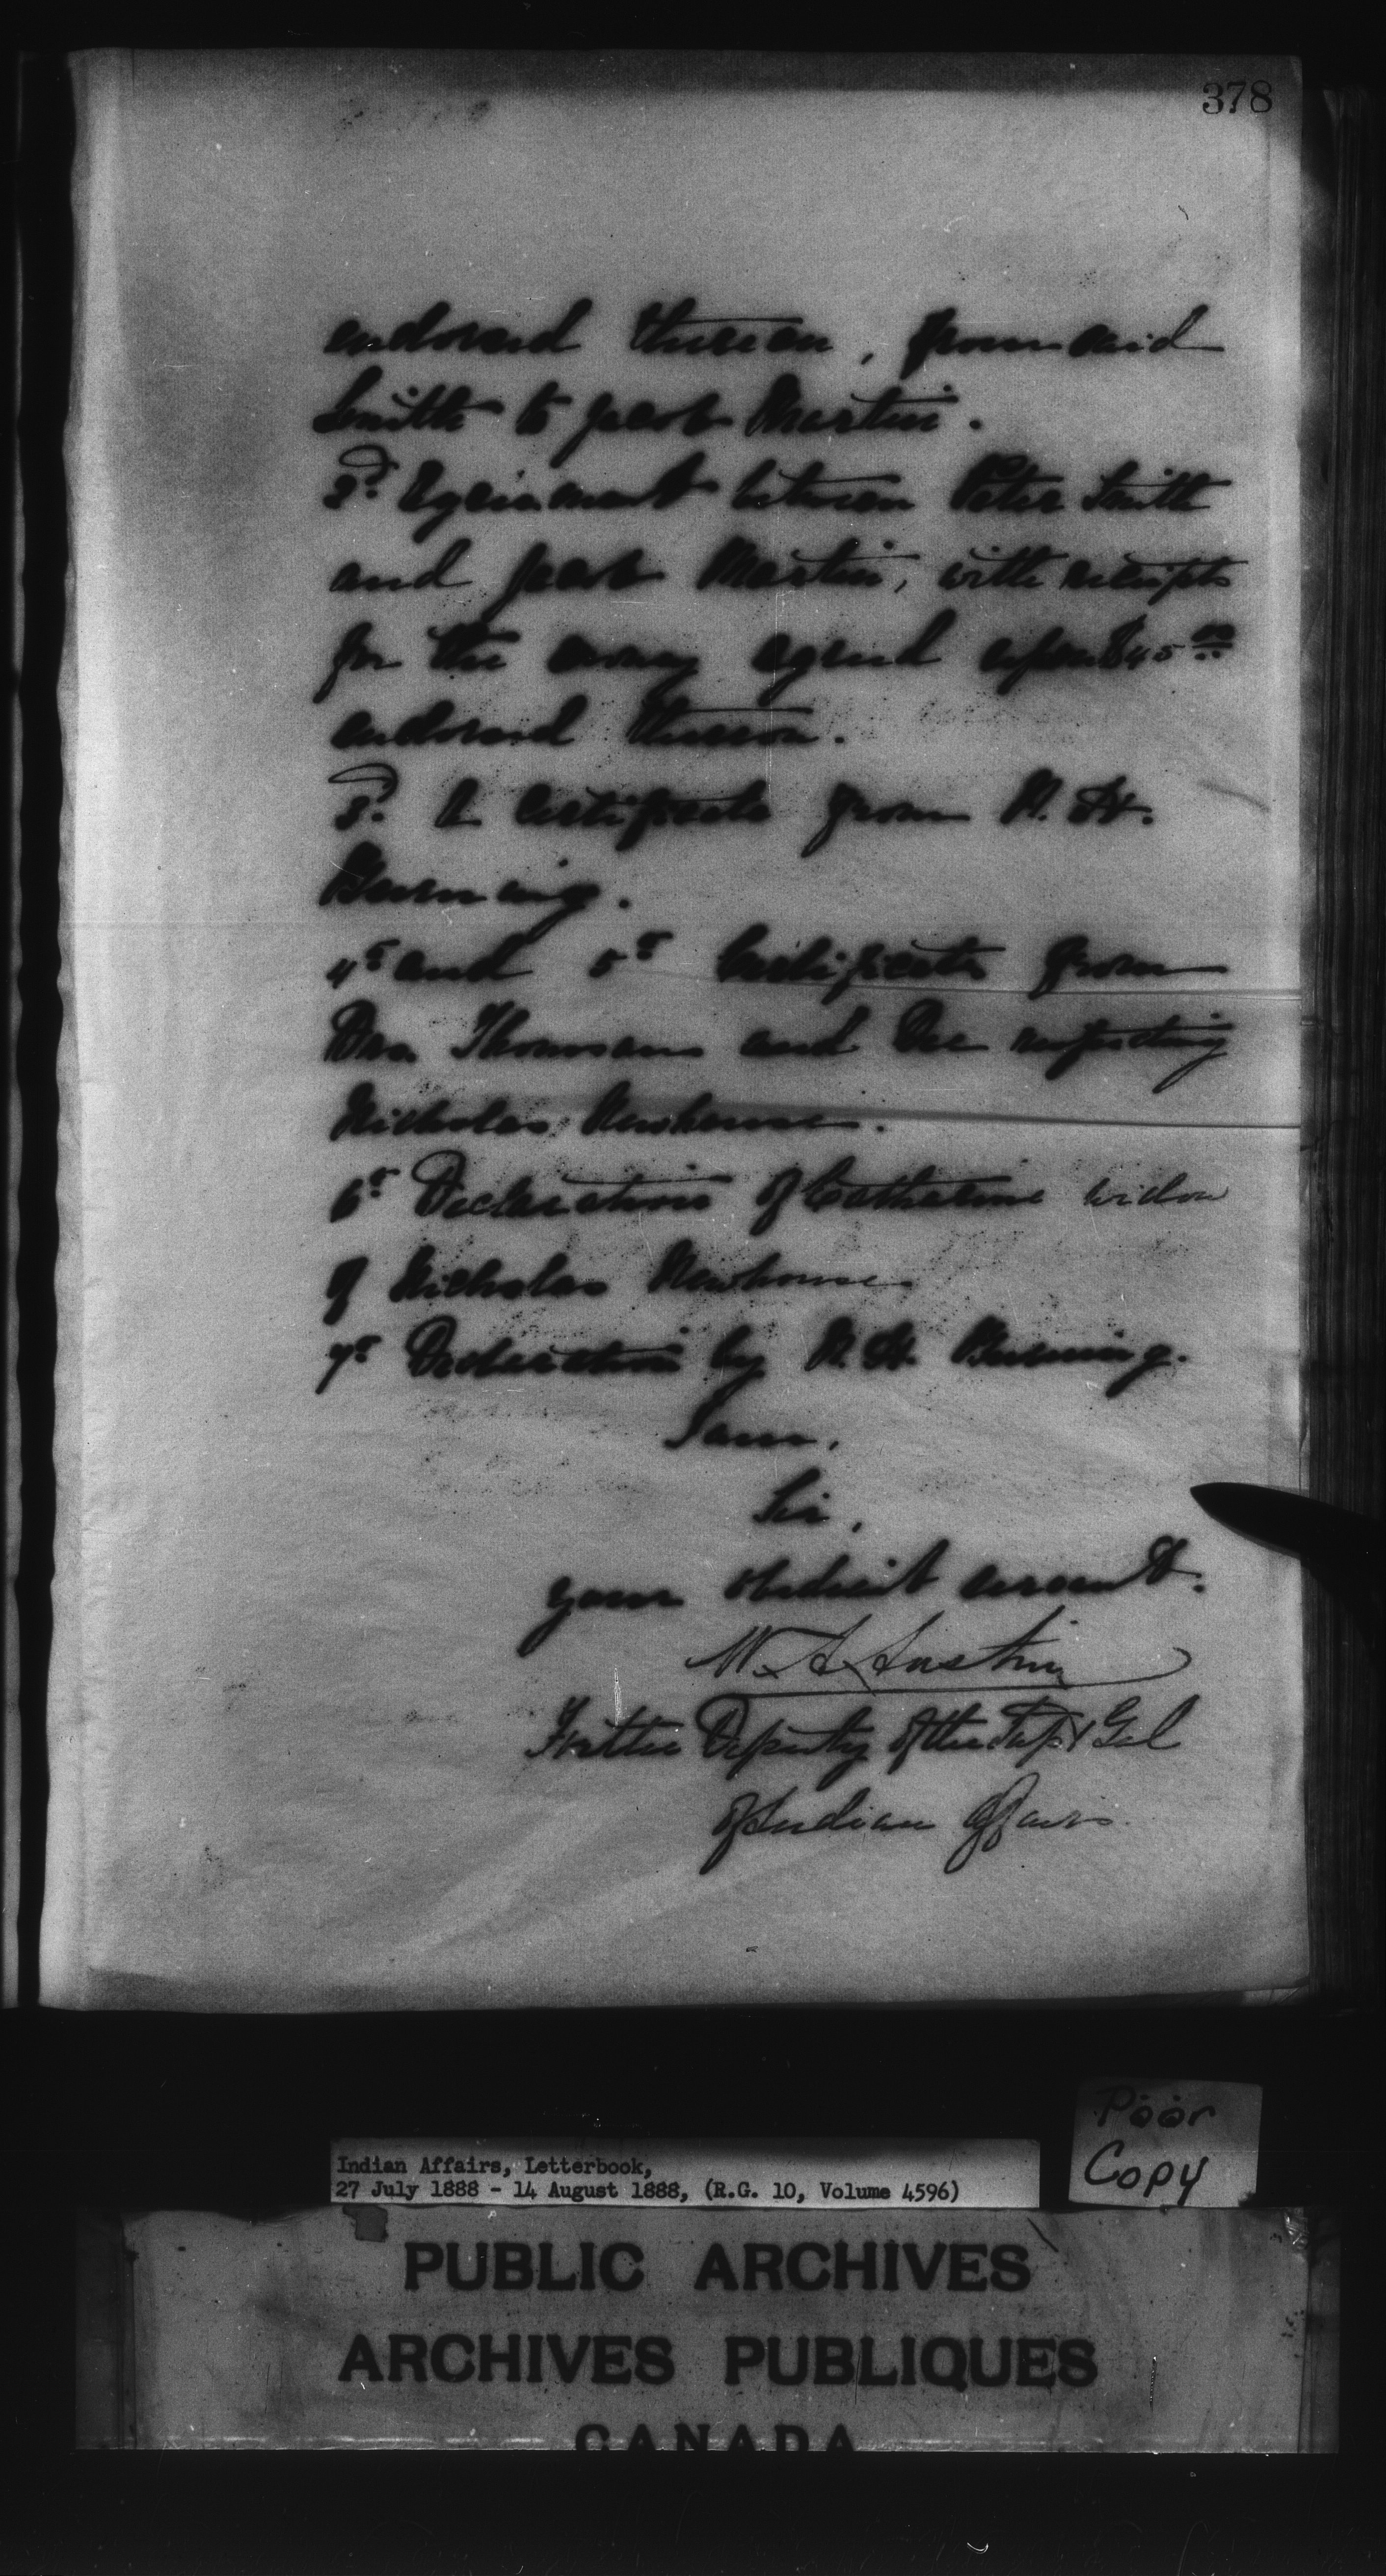 378
endorsed thereon, from said
Smith to Jacob Martin.
2d. Agreement between Peter Smith
and Jacob Martin, with receipts
for the money agreed upon $45.00
endorsed thereon.
3d. A Certificate from N. H.
Burning.
4th and 5th Certificates from
Drs. and Dee respecting
Nicholas Newhouse.
6th Declaration of Catherine widow
of Nicholas Newhouse
7th Declaration by N. H. Burning.
I am,
Sir,
your obedient servant.
W. A. Austin
For the Deputy of the Supt Gel
of Indian Affairs.
Poor
Copy
Indian Affairs, Letterbook,
27 July 1888 - 14 August 1888, (R.G. 10, Volume 4596)
PUBLIC ARCHIVES
ARCHIVES PUBLIQUES
CANADA